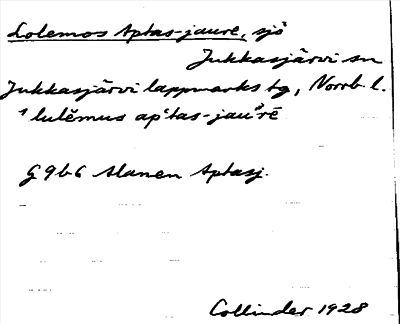 Lolemos Aptas-jaure, sjö
Jukkasjärvi sn
Jukkasjärvi lappmarks tg, Norrb. l.
lulĕmus ap'tas-jau'rē
G 9 b 6 Alanen Aptasj.
Collinder 1928